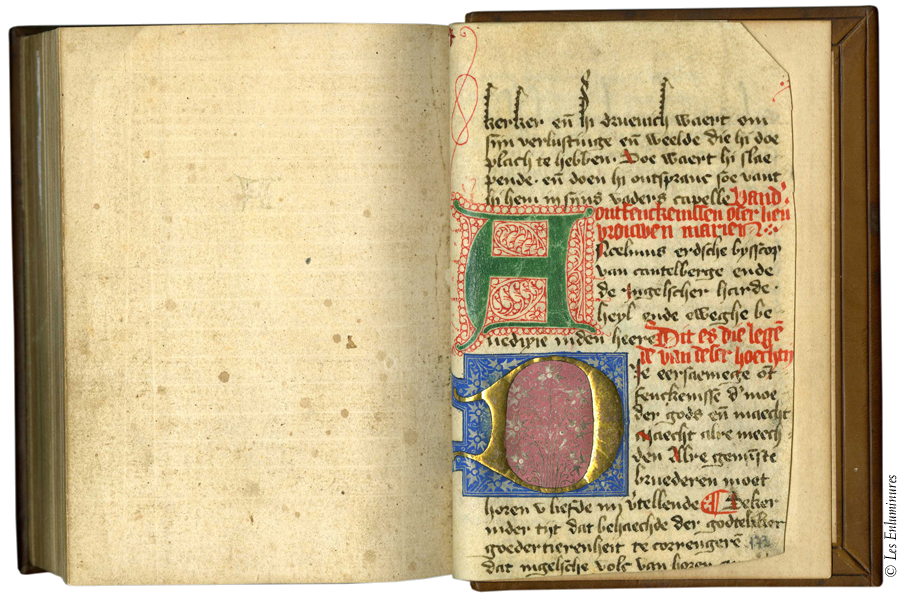 kerker eñ hi druevich waert om
sijn verlustinge eñ weelde die hi doe
plach te hebben. Doe waert hi slae
pende. eñ doen hi ontspranc soe vant
hi hem in sijns vaders capelle Vand'
ontfenckenissen onser lieu
vrouwen marien
Ancelmus erdsche bysscop
van cantelberge ende
de ingelscher harde.
heyl ende eweghe be
nedixie inden heere Dit es die lege
de van deser hoechtij
Die eersaemege ont
fenckenisse d' moe
der gods eñ maecht
maecht alre meech
den Alre gemiste
bruederen moet
horen v liefde mij v'tellende Seker
inder tijt dat behaechde der godteliker
goedertierenheit te correngeren
dat ingelsche volc van horen
© Les Enluminures